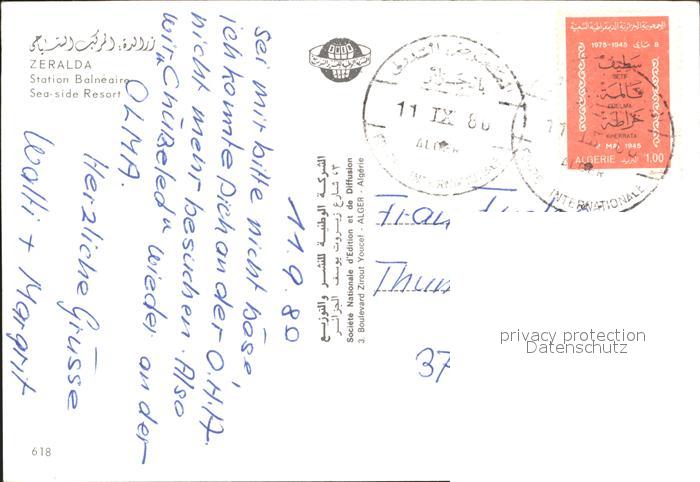 زرالدة: المركب السياحي
ZERALDA
Station Balnéaire
Sea-side Resort
Sei mir bitte nicht böse,
ich konnte Dich an der O.H.A.
nicht mehr besuchen. Also
wir "Chübeled" wieder an der
OLMA.
Herzliche Grüsse
Walti + Margrit
11.9.80
الشركة الوطنية للنشر والتوزيع
٣، شارع زيروت يوسف الجزائر
Société Nationale d'Edition et de Diffusion
3, Boulevard Zirout Youcef - ALGER - Algérie
11 IX 80
ALGER
INTERNATIONALE
الجمهورية الجزائرية الديمقراطية الشعبية
1975-1945 8 ماي
سطيف
SETIF
قالمة
GUELMA
خراطة
KHERRATA
MAI 1945
ALGERIE 1.00
INTERNATIONALE
Frau
Thun
37
privacy protection
Datenschutz
618